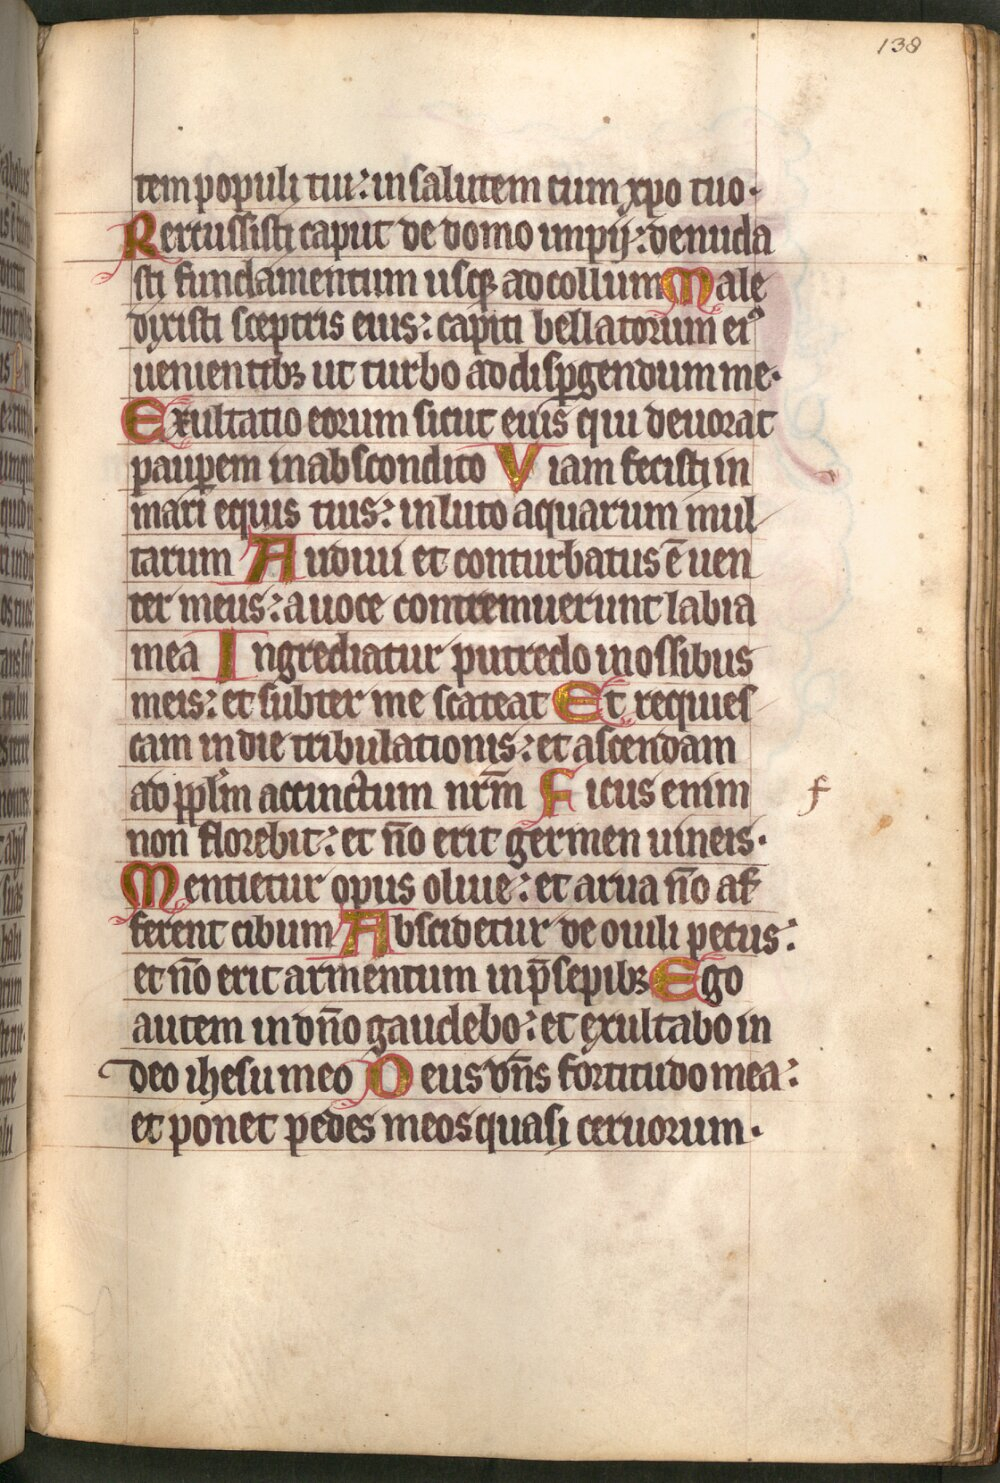 138
tem populi tui: in salutem cum xpo tuo.
Percussisti caput de domo impij: denuda
sti fundamentum usq; ad collum Male
dixisti sceptris eius: capiti bellatorum eiꝰ
uenientibꝫ ut turbo ad disꝑgendum me.
Exultatio eorum sicut eius qui deuorat
pauꝑem in abscondito Viam fecisti in
mari equis tuis: in luto aquarum mul
tarum Audiui et conturbatus ē uen
ter meus: a uoce contremuerunt labia
mea Ingrediatur putredo in ossibus
meis: et subter me scateat Et requies
cam in die tribulationis: et ascendam
ad pplm̄ accinctum nr̄m Ficus enim
f
non florebit: et n̄o erit germen uineis.
Mentietur opus oliue: et arua n̄o af
ferent cibum Abscidetur de ouili pecus:
et n̄o erit armentum in p̄sepibꝫ Ego
autem in dn̄o gaudebo: et exultabo in
deo ihesu meo Deus dn̄s fortitudo mea:
et ponet pedes meos quasi ceruorum.